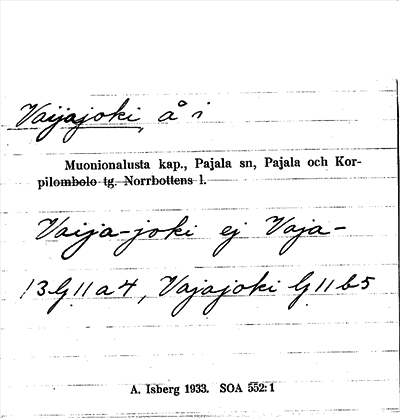 Vaijajoki, å i
Muonionalusta kap., Pajala sn, Pajala och Kor-
pilombolo tg. Norrbottens l.
Vaija-joki ej Vaja-
13 G 11 a 4, Vajajoki G 11 b 5
A. Isberg 1933. SOA 552:1